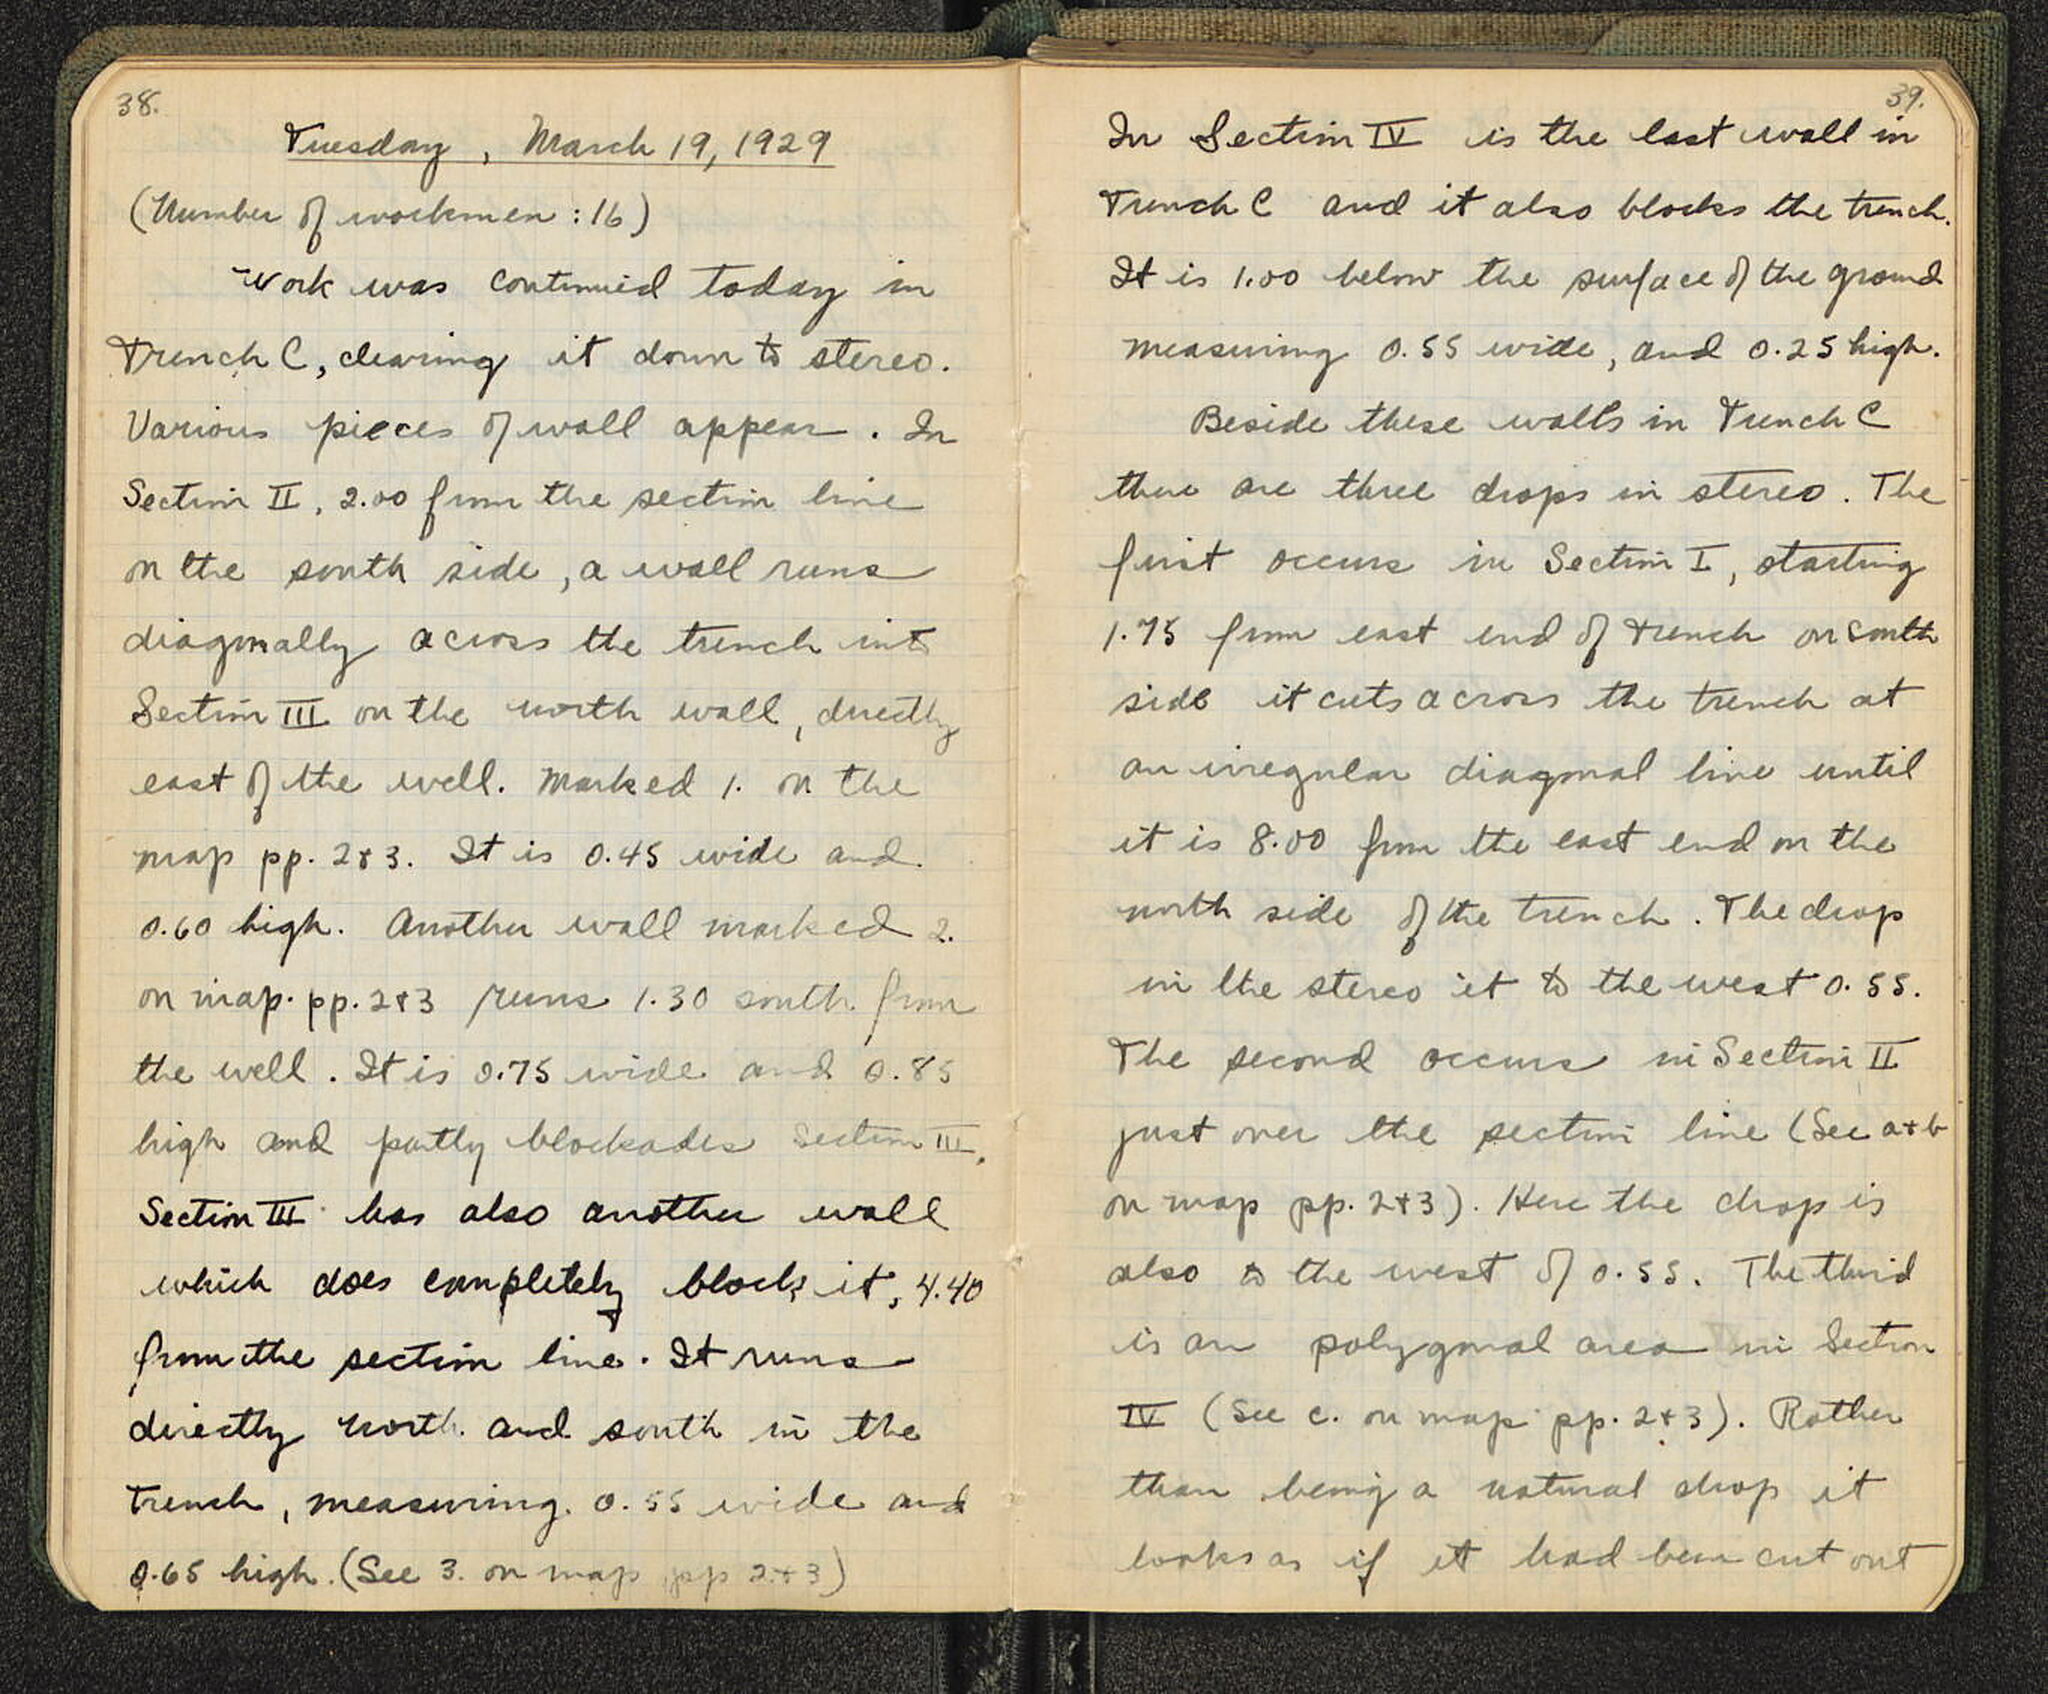 38.
Tuesday, March 19, 1929
(Number of workmen: 16)
Work was continued today in
Trench C, clearing it down to stereo.
Various pieces of wall appear. In
Section II, 2.00 from the section line
on the south side, a wall runs
diagonally across the trench into
Section III on the north wall, directly
east of the well. Marked 1. on the
map pp. 2+3. It is 0.45 wide and
0.60 high. Another wall marked 2.
on map pp. 2+3 runs 1.30 south from
the well. It is 0.75 wide and 0.85
high and partly blockades Section III.
Section III has also another wall
which does completely block it, 4.40
from the section line. It runs
directly north and south in the
trench, measuring 0.55 wide and
0.65 high. (See 3. on map pp 2+3)
39.
In Section IV is the last wall in
Trench C and it also blocks the trench.
It is 1.00 below the surface of the ground
measuring 0.55 wide, and 0.25 high.
Beside these walls in Trench C
there are three drops in stereo. The
first occurs in Section I, starting
1.75 from east end of trench on south
side it cuts across the trench at
an irregular diagonal line until
it is 8.00 from the east end on the
north side of the trench. The drop
in the stereo it to the west 0.55.
The second occurs in Section II
just over the section line (See a+b
on map pp. 2+3). Here the drop is
also to the west of 0.55. The third
is an polygonal area in Section
IV (See c. on map pp. 2+3). Rather
than being a natural drop it
looks as if it had been cut out